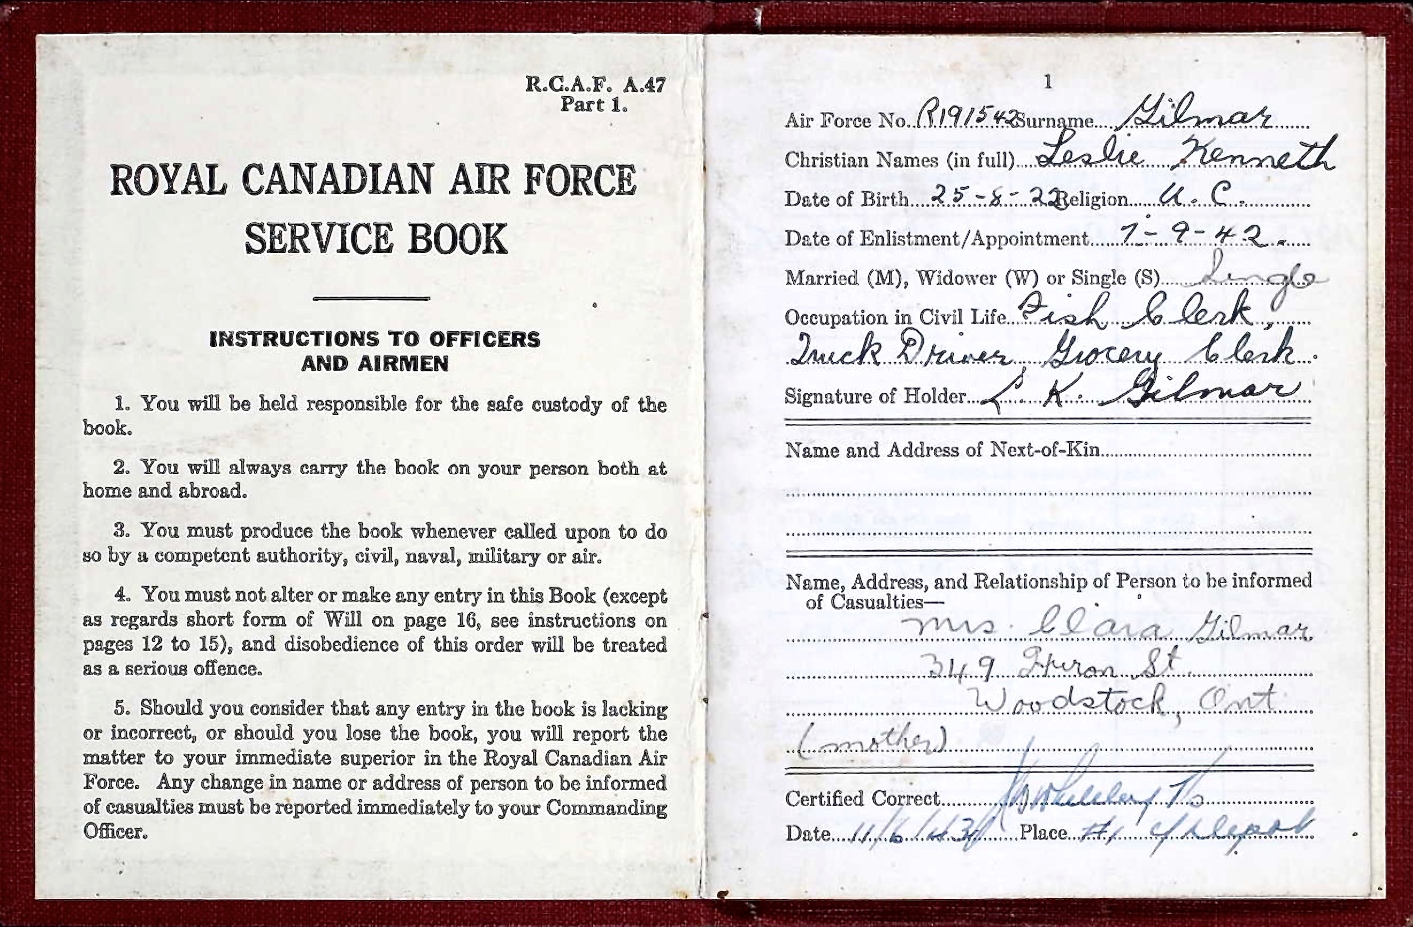 R.C.A.F. A.47
Part 1.
ROYAL CANADIAN AIR FORCE
SERVICE BOOK
INSTRUCTIONS TO OFFICERS
AND AIRMEN
1. You will be held responsible for the safe custody of the
book.
2. You will always carry the book on your person both at
home and abroad.
3. You must produce the book whenever called upon to do
so by a competent authority, civil, naval, military or air.
4. You must not alter or make any entry in this Book (except
as regards short form of Will on page 16, see instructions on
pages 12 to 15), and disobedience of this order will be treated
as a serious offence.
5. Should you consider that any entry in the book is lacking
or incorrect, or should you lose the book, you will report the
matter to your immediate superior in the Royal Canadian Air
Force. Any change in name or address of person to be informed
of casualties must be reported immediately to your Commanding
Officer.
1
Air Force No. R191542 Surname Gilmar
Christian Names (in full) Leslie Kenneth
Date of Birth 25-8-22 Religion U.C.
Date of Enlistment/Appointment 7-9-42.
Married (M), Widower (W) or Single (S) Single
Occupation in Civil Life Fish Clerk,
Truck Driver, Grocery Clerk.
Signature of Holder L. K. Gilmar
Name and Address of Next-of-Kin
Name, Address, and Relationship of Person to be informed
of Casualties—
Mrs. Clara Gilmar
349 Huron St.
Woodstock, Ont
(mother)
Certified Correct
Date 11/6/43 Place #1